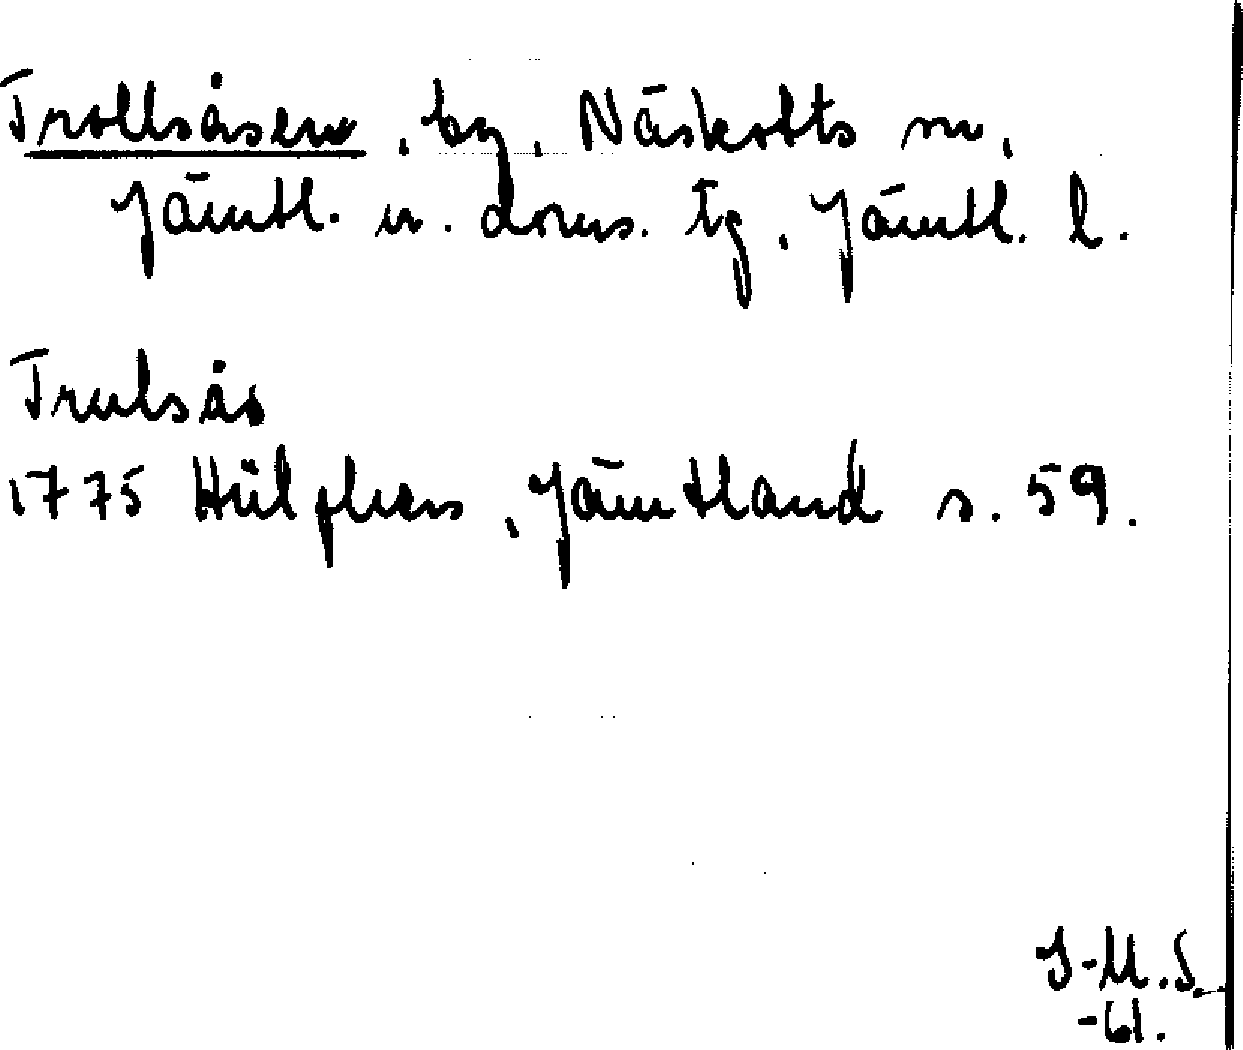 Trollsåsen, by, Näskotts sn,
Jämtl. n. doms. tg, Jämtl. l.
Trulsås
1775 Hülphers, Jämtland s. 59.
I-M.S.
-61.